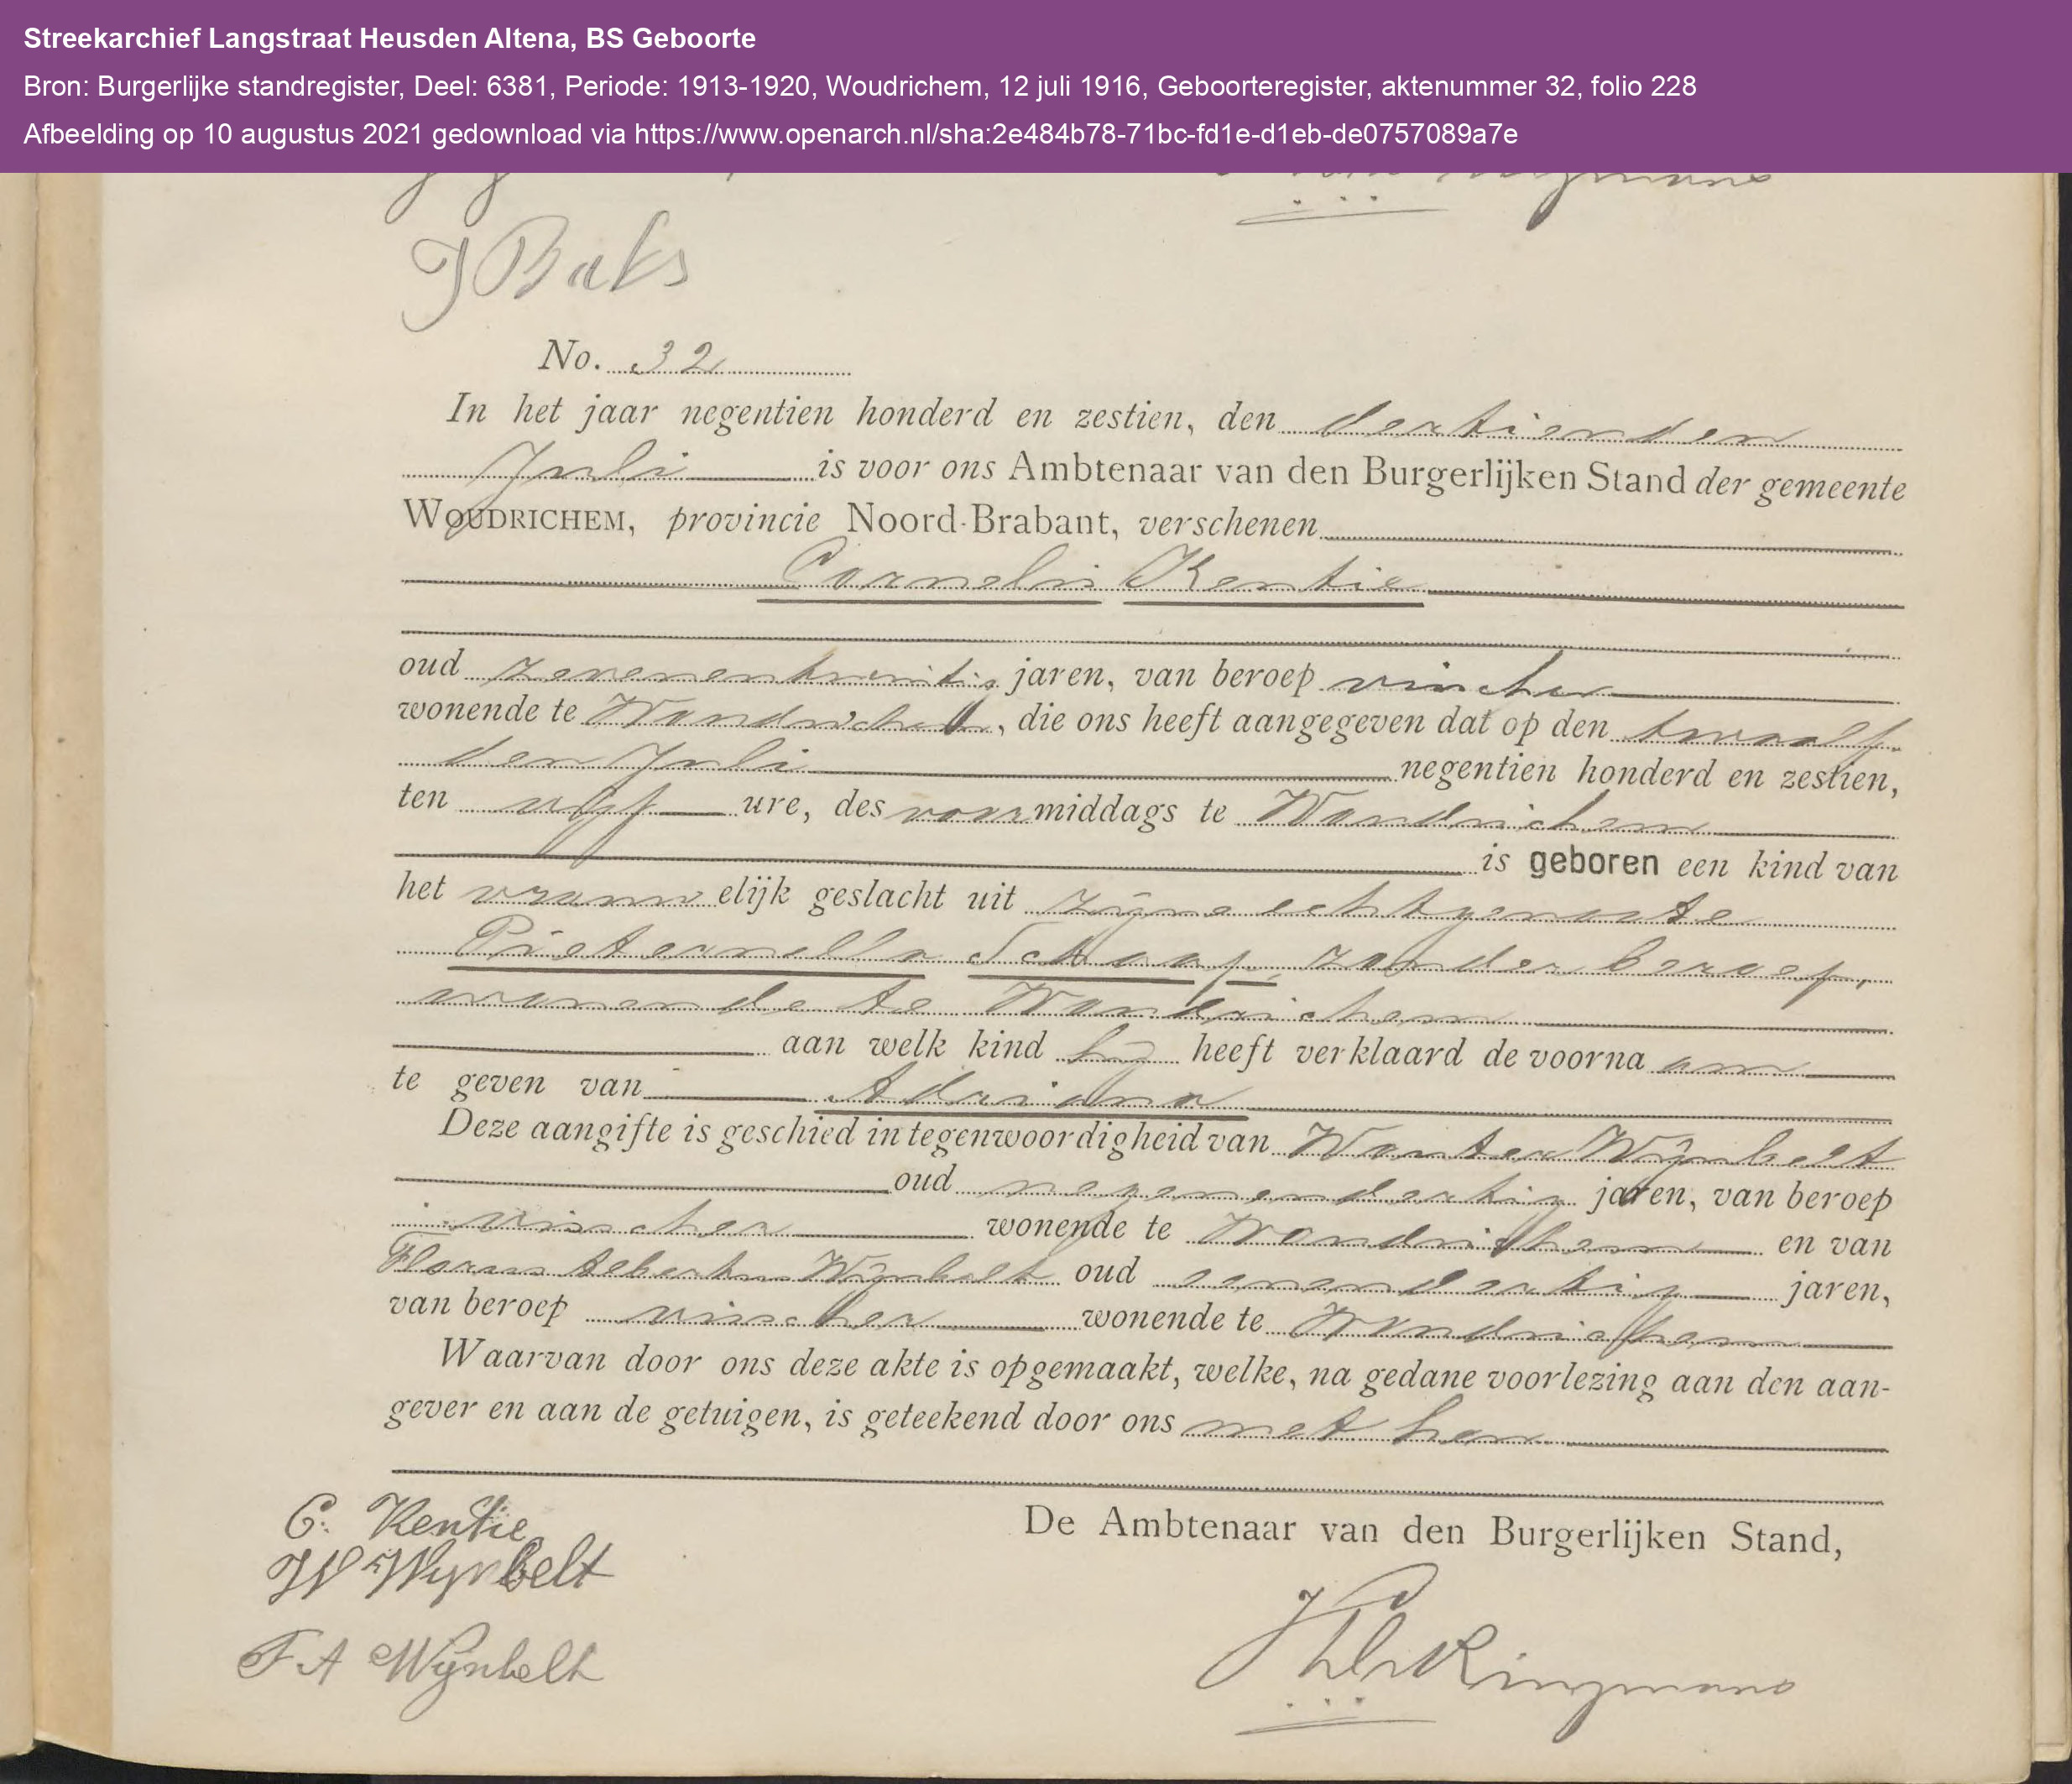 Streekarchief Langstraat Heusden Altena, BS Geboorte
Bron: Burgerlijke standregister, Deel: 6381, Periode: 1913-1920, Woudrichem, 12 juli 1916, Geboorteregister, aktenummer 32, folio 228
Afbeelding op 10 augustus 2021 gedownload via https://www.openarch.nl/sha:2e484b78-71bc-fd1e-d1eb-de0757089a7e
J Baks
No. 32
In het jaar negentien honderd en zestien, den dertienden
Juli is voor ons Ambtenaar van den Burgerlijken Stand der gemeente
WOUDRICHEM, provincie Noord-Brabant, verschenen
Cornelis Kentie
oud zevenentwintig jaren, van beroep visscher
wonende te Woudrichem, die ons heeft aangegeven dat op den twaalf
den Juli negentien honderd en zestien,
ten vijf ure, des voormiddags te Woudrichem
is geboren een kind van
het vrouwelijk geslacht uit zijne echtgenoote
Pieternella Schaap, zonder beroep,
wonende te Woudrichem
aan welk kind hij heeft verklaard de voornaam
te geven van Adriana
Deze aangifte is geschied in tegenwoordigheid van Wouter Wijnbelt
oud negenendertig jaren, van beroep
visscher wonende te Woudrichem en van
Floris Albertus Wijnbelt oud eenendertig jaren,
van beroep visscher wonende te Woudrichem
Waarvan door ons deze akte is opgemaakt, welke, na gedane voorlezing aan den aan-
gever en aan de getuigen, is geteekend door ons met hen
De Ambtenaar van den Burgerlijken Stand,
C. Kentie
W Wijnbelt
F A Wijnbelt